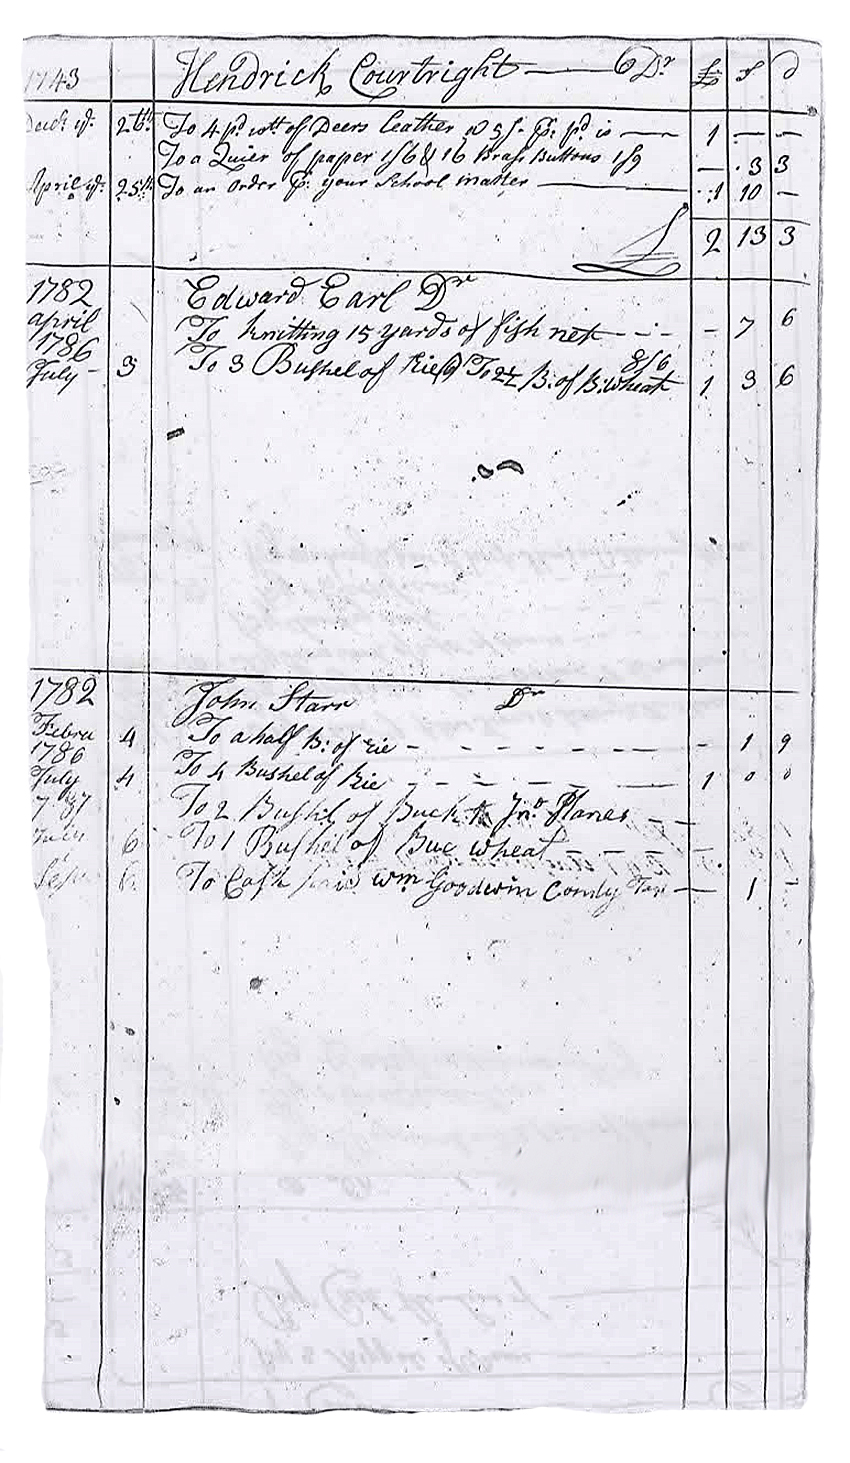 1743 Hendrick Courtright Dr £ s d
26th To 4 pd wtt of Deers leather @ 5/- pr pd is 1 — —
To a Quier of paper 1/6 & 16 Brass Buttons 1/9 — 3 3
April ye 25th To an order pr your School master 1 10 —
£ 2 13 3
1782 Edward Earl Dr
april To Knitting 15 yards of fish net - 7 6
1786
July 3 To 3 Bushel of Rie @ To 2½ B: of B:wheat 8/6 1 3 6
1782 John Starr Dr
Febru 4 To a half B: of rie - 1 9
1786
July 4 To 4 Bushel of Rie 1 0 0
To 2 Bushel of Buck Jno Planes
6 To 1 Bushel of Buc wheat
Sepr 6 To Cash paid wm Goodwin County Tax — 1 -